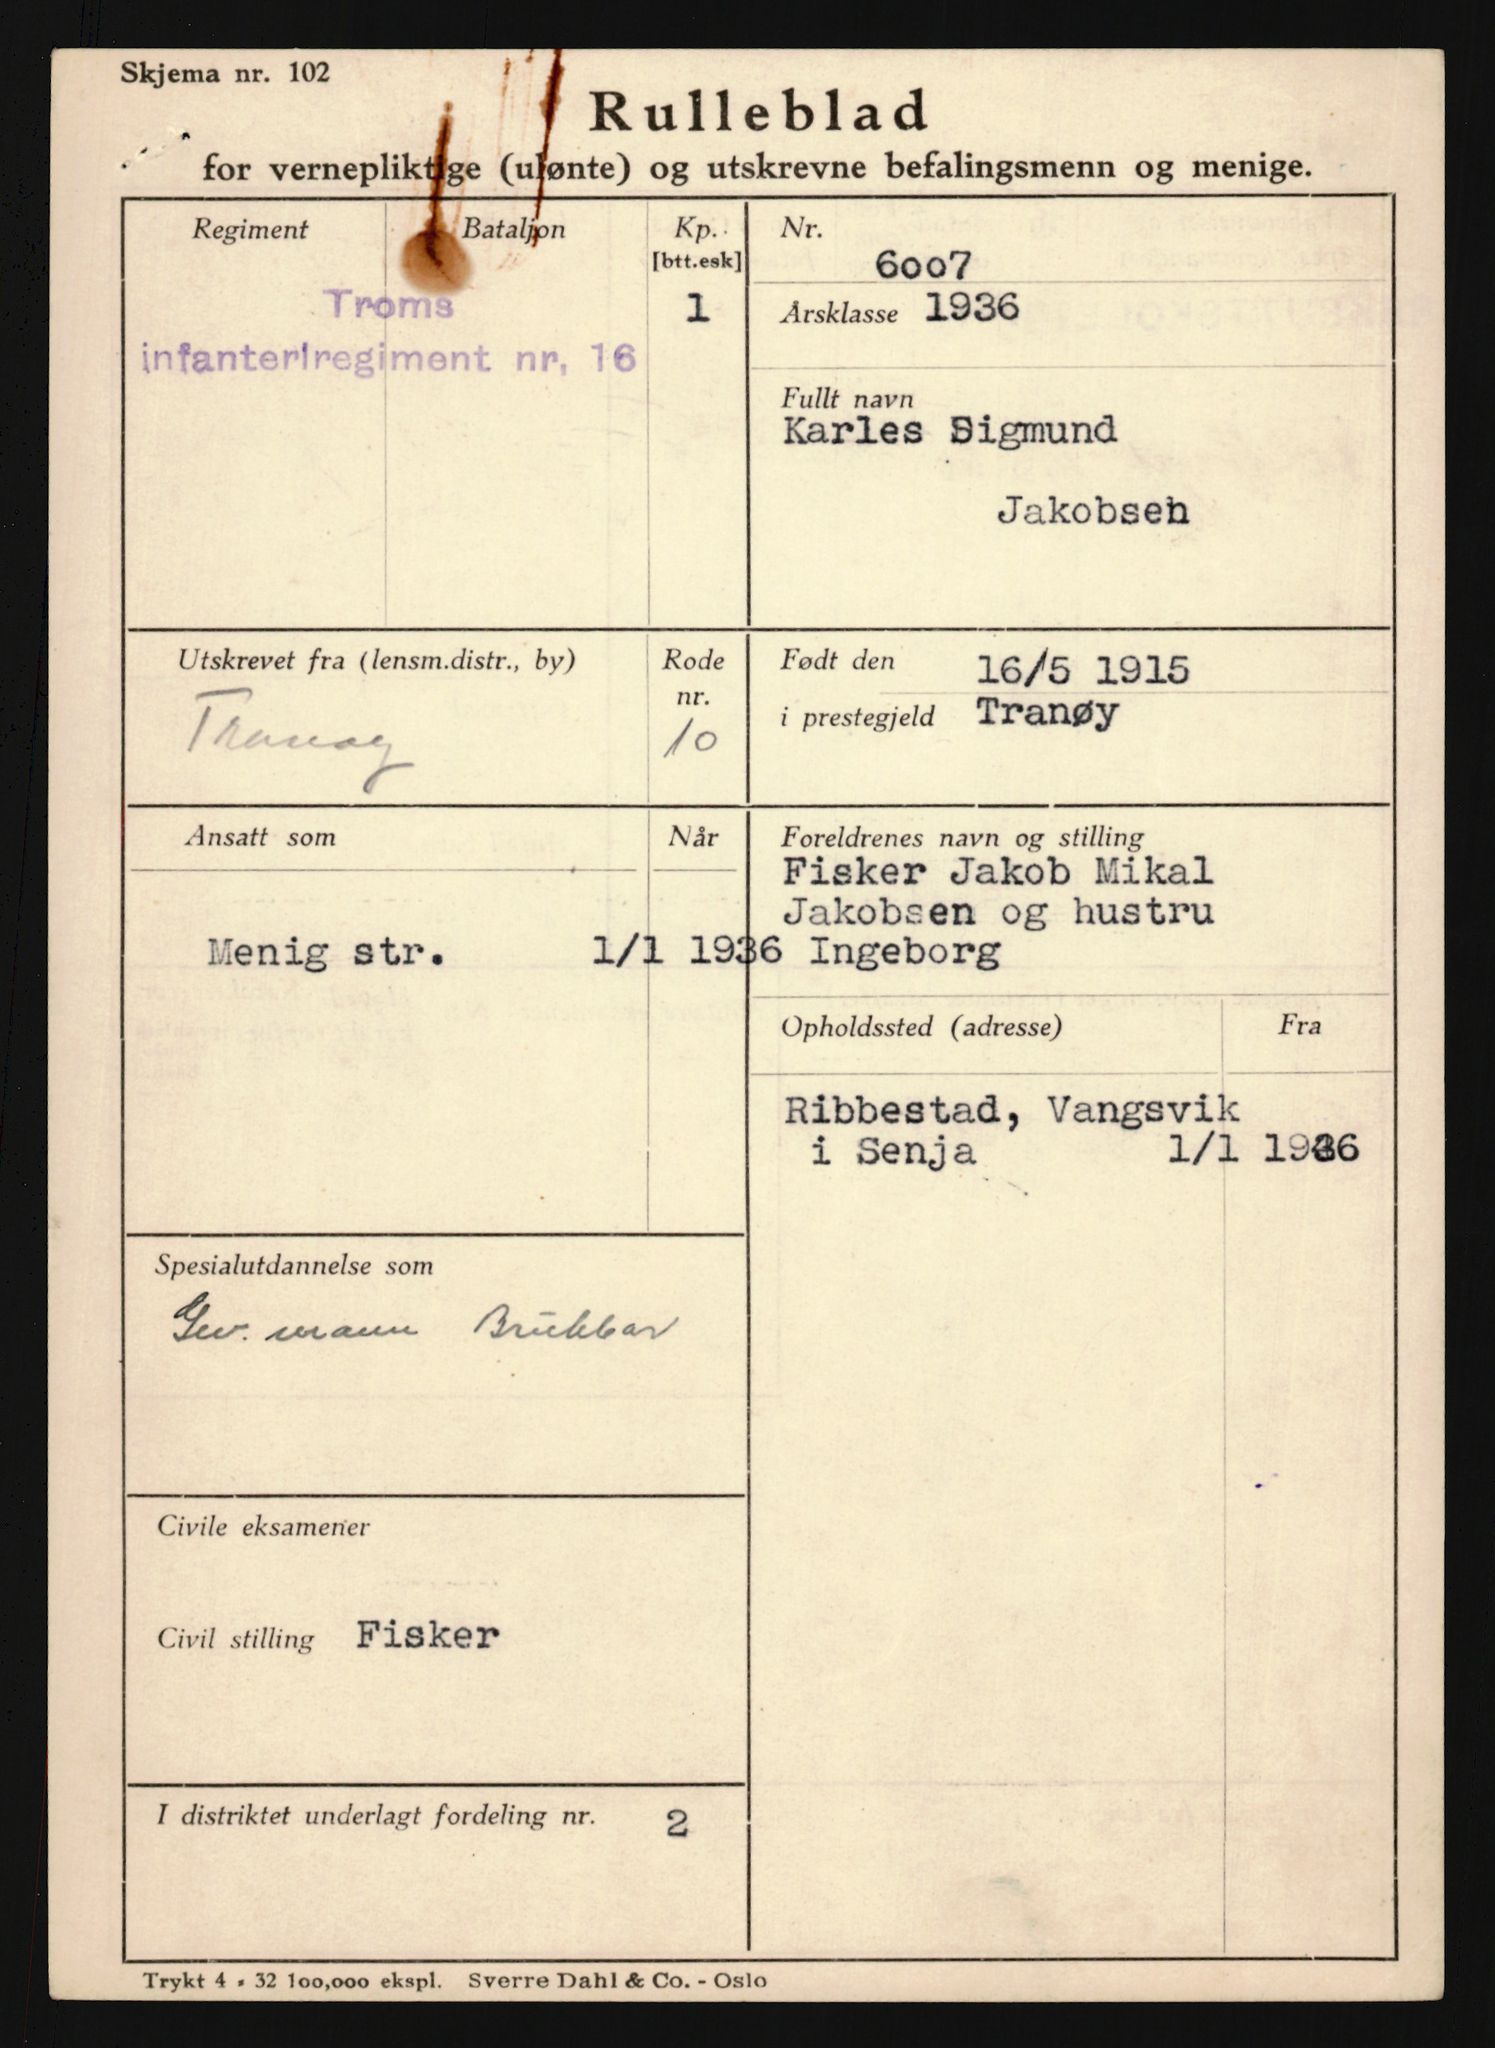 Skjema nr. 102
Rulleblad
for vernepliktige (ulønte) og utskrevne befalingsmenn og menige.
Regiment Bataljon Kp. [btt.esk]
Troms 1
infanteriregiment nr. 16
Nr. 6007
Årsklasse 1936
Fullt navn
Karles Sigmund
Jakobsen
Utskrevet fra (lensm.distr., by) Rode nr.
Tranøy 10
Født den 16/5 1915
i prestegjeld Tranøy
Ansatt som Når
Menig str. 1/1 1936
Foreldrenes navn og stilling
Fisker Jakob Mikal
Jakobsen og hustru
Ingeborg
Opholdssted (adresse) Fra
Ribbestad, Vangsvik
i Senja 1/1 1936
Spesialutdannelse som
Gev. mann
Civile eksamener
Civil stilling Fisker
I distriktet underlagt fordeling nr. 2
Trykt 4 - 32 100,000 ekspl. Sverre Dahl & Co. - Oslo